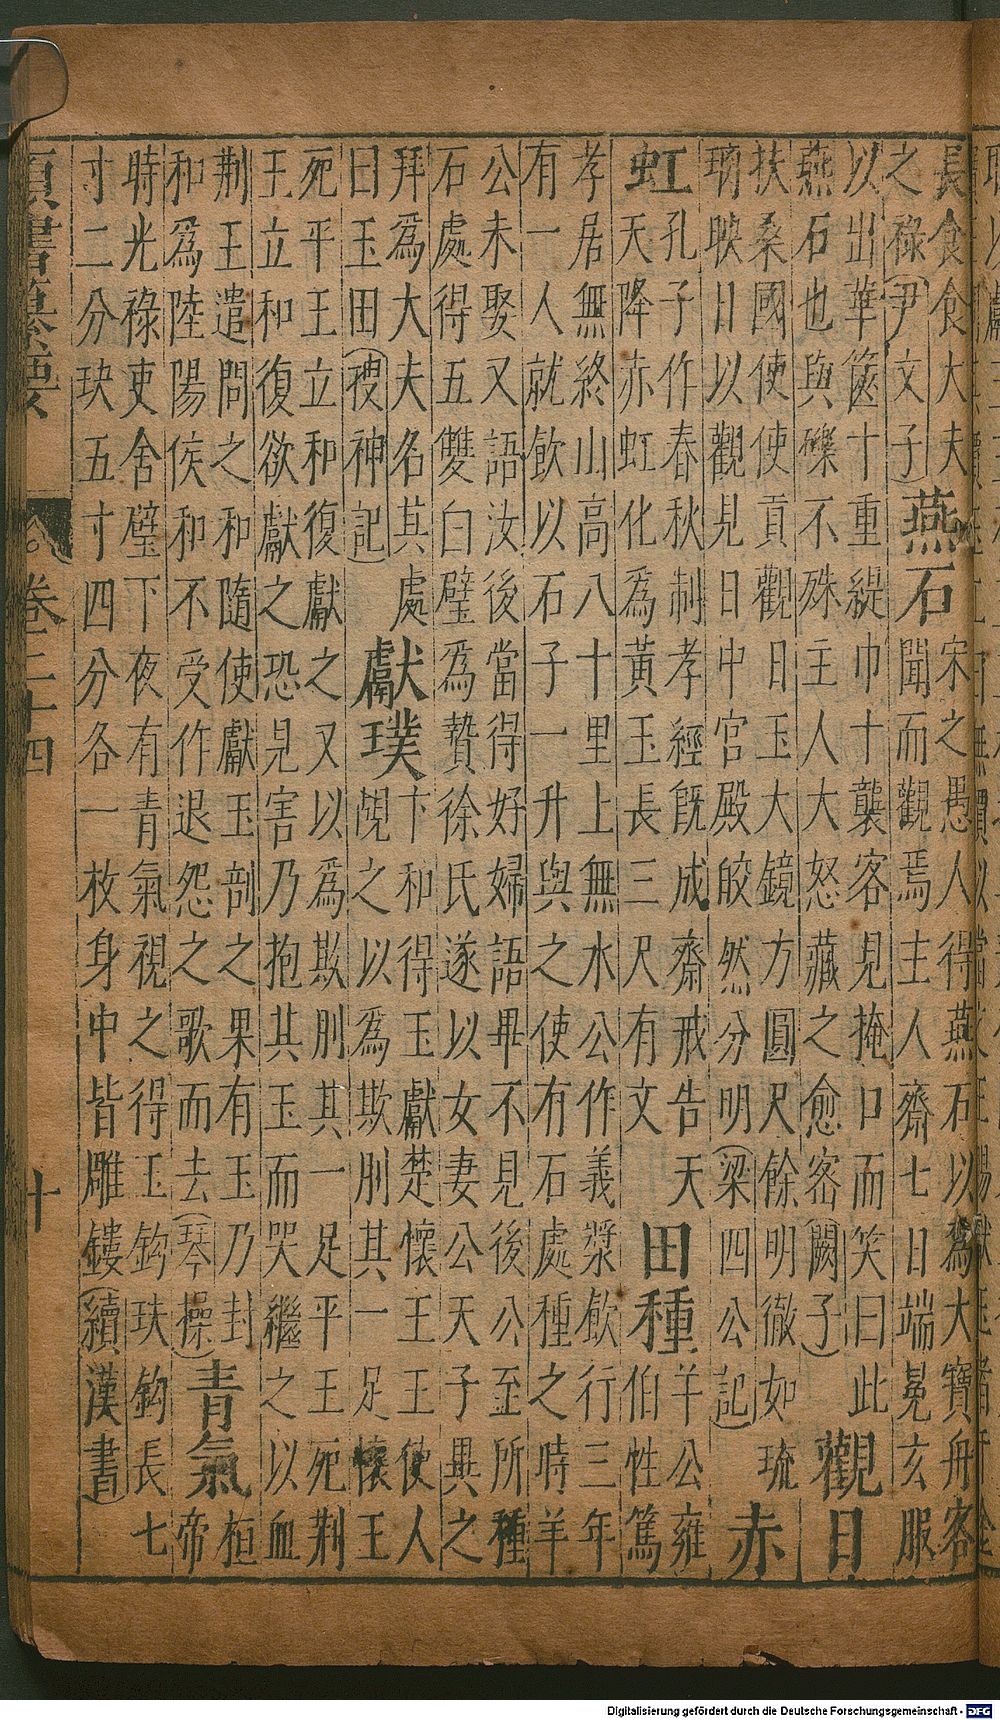 長食食大夫
之祿(尹文子)
燕石
宋之愚人得燕石以爲大寶舟客
聞而觀焉主人齋七日端冕玄服
以出華篋十重緹巾十襲客見掩口而笑曰此
燕石也與礫不殊主人大怒藏之愈密(闕子)
觀日
扶桑國使使貢觀日玉大鏡方圓尺餘明徹如琉
璃映日以觀見日中宮殿皎然分明(梁四公記)
赤
虹
孔子作春秋制孝經旣成齋戒告天
天降赤虹化爲黃玉長三尺有文
田種
羊公雍
伯性篤
孝居無終山高八十里上無水公作義漿飲行三年
有一人就飲以石子一升與之使有石處種之時羊
公未娶又語汝後當得好婦語畢不見後公至所種
石處得五雙白璧爲贄徐氏遂以女妻公天子異之
拜爲大夫名其處
曰玉田(䙚神記)
獻璞
卞和得玉獻楚懷王王使人
覘之以爲欺刖其一足懷王
死平王立和復獻之又以爲欺刖其一足平王死荆
王立和復欲獻之恐見害乃抱其玉而哭繼之以血
荆王遣問之和隨使獻玉剖之果有玉乃封
和爲陸陽侯和不受作退怨之歌而去(琴操)
青氣
桓
帝
時光祿吏舍璧下夜有青氣視之得玉鈎玦鈎長七
寸二分玦五寸四分各一枚身中皆雕鏤(續漢書)
類書纂要
卷三十四
十
Digitalisierung gefördert durch die Deutsche Forschungsgemeinschaft - DFG